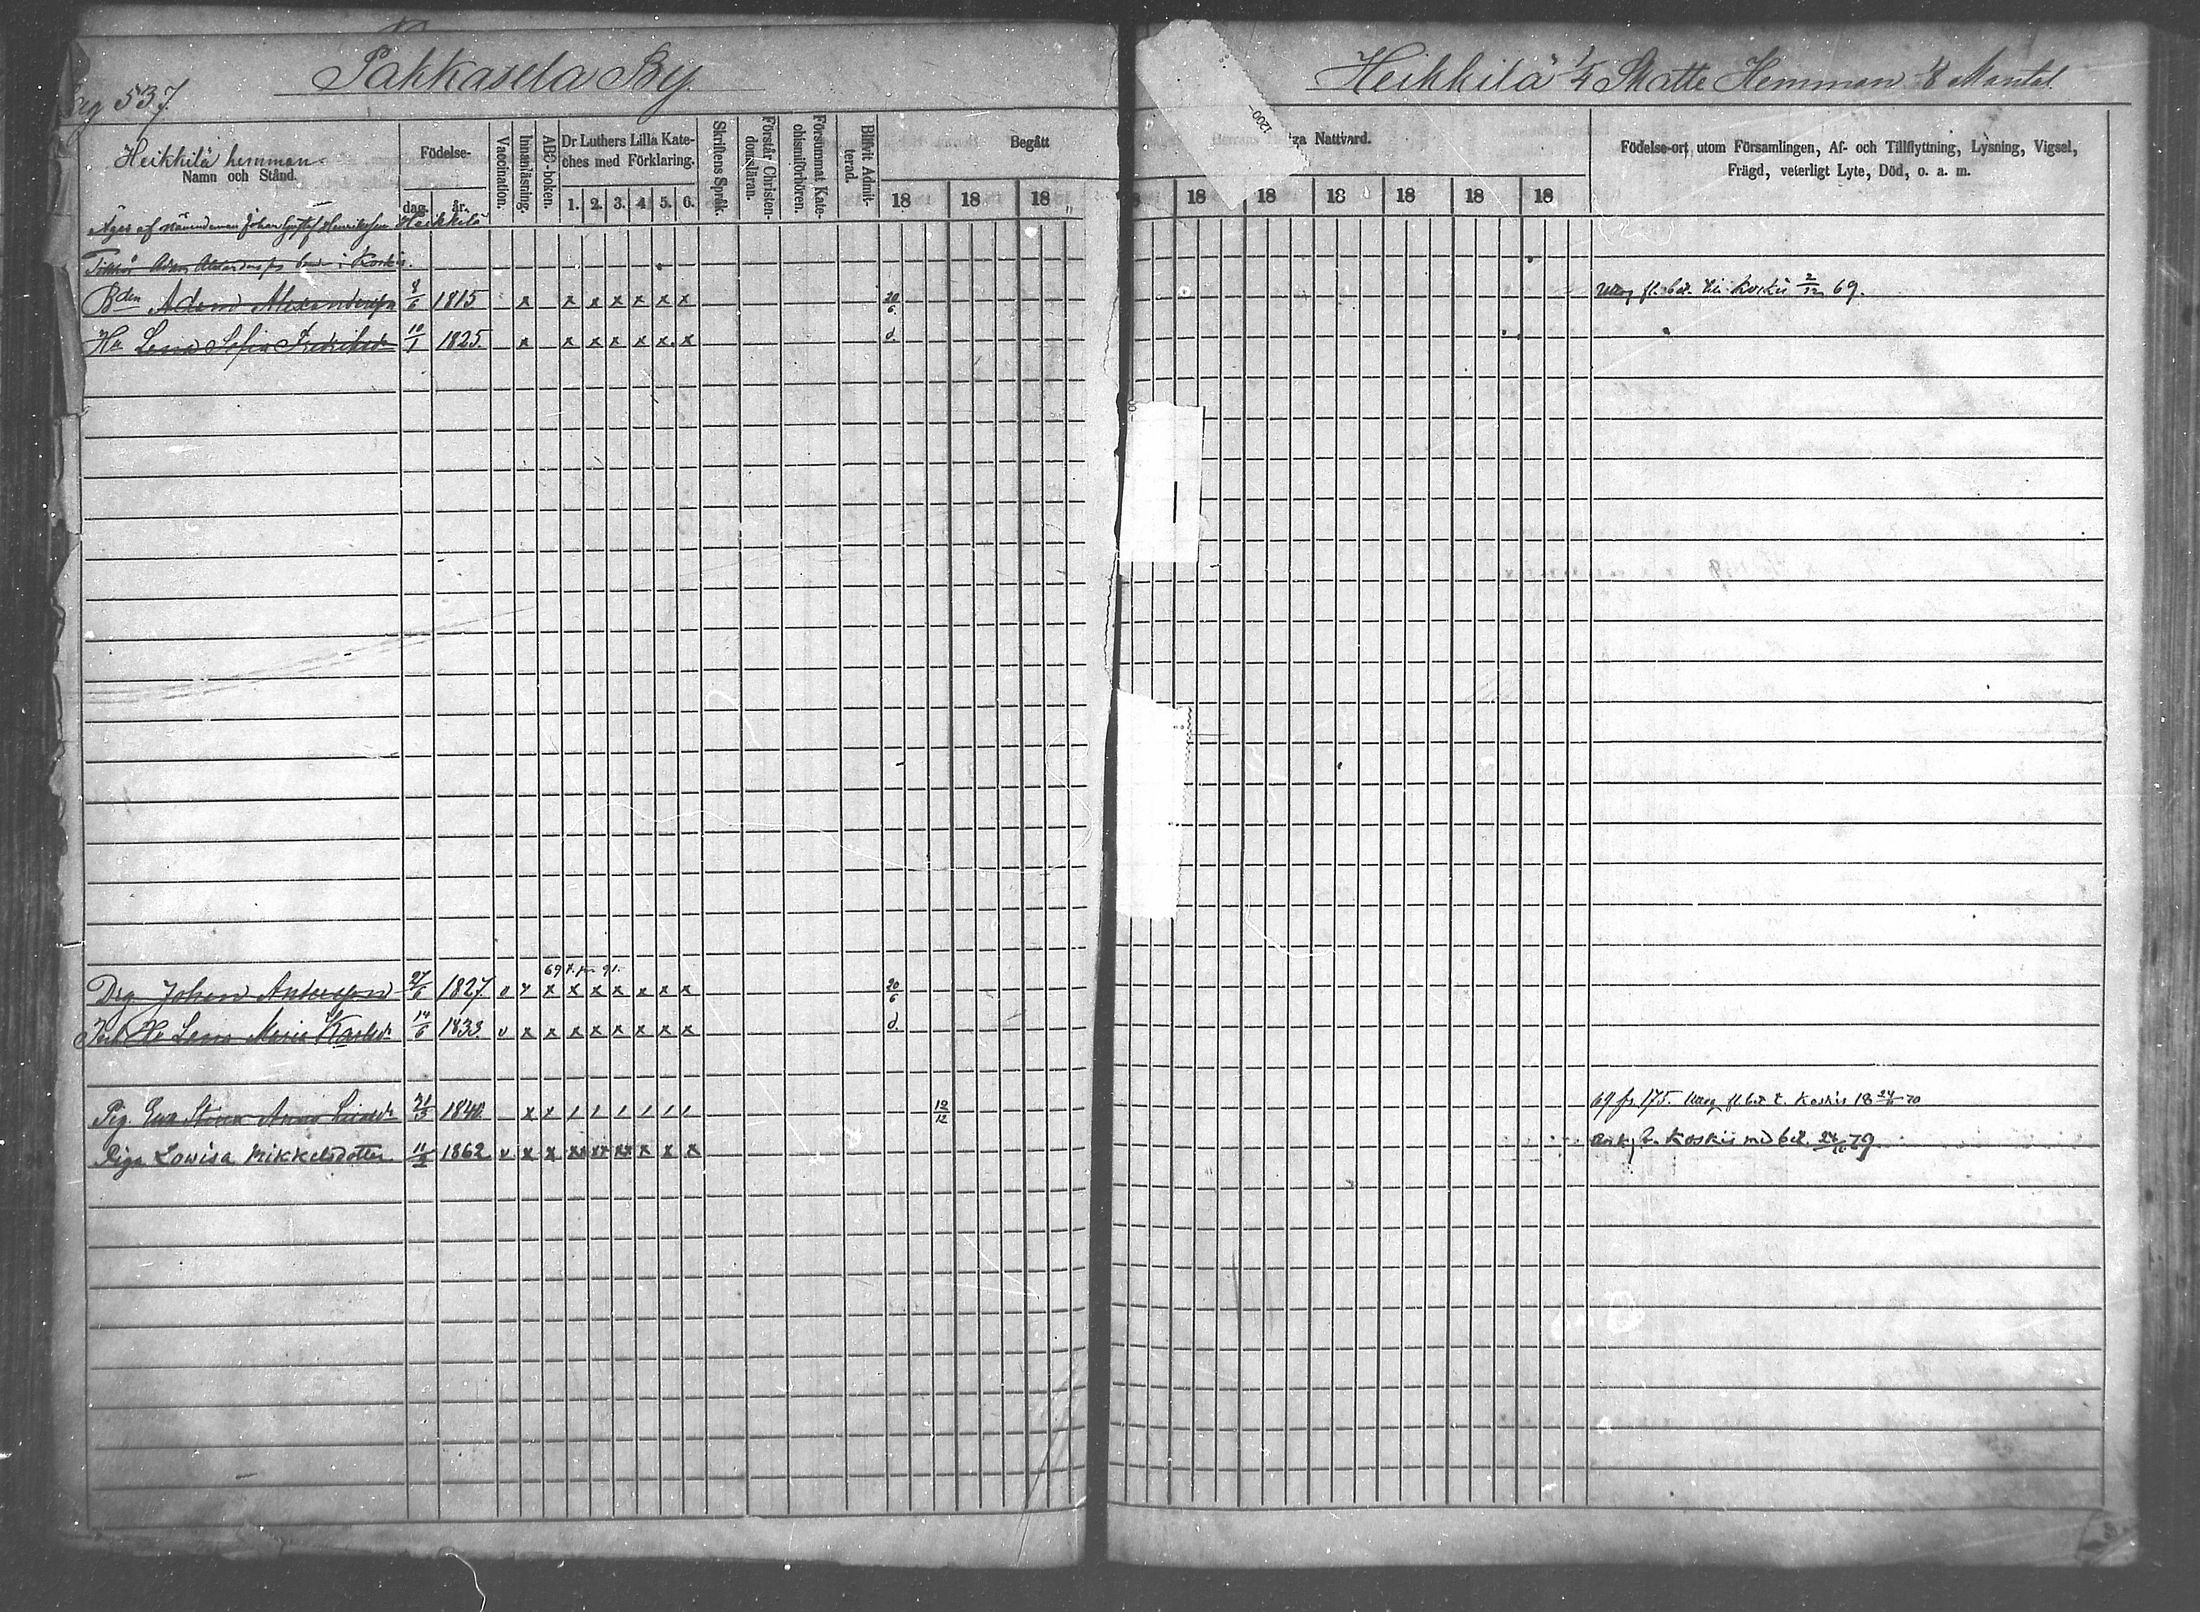 Pakkasela By.
Heikkilä 1/4 Skatte Hemman 1/8 Mantal
537.
Heikkilä hemman
Namn och Stånd.
Födelse-
dag. år.
Vaccination.
Innanläsning.
ABC-boken.
Dr Luthers Lilla Kate-
ches med Förklaring.
1. 2. 3. 4. 5. 6.
Skriftens Språk.
Förstår Christen-
domsläran.
Försummat Kate-
chismiförhören.
Blifvit Admit-
terad.
Begått
Nattvard.
18 18 18 18 18 18 18 18 18
1200-
Födelse-ort utom Församlingen, Af- och Tillflyttning, Lysning, Vigsel,
Frägd, veterligt Lyte, Död, o. a. m.
Äges af nämndeman Johan Gustaf Henriksson Heikkilä
i Koskis.
Bden Adam Alexandersson 8/6 1815 x x x x x x x 20/6 fl. bet. till Koskis 2/12 69.
Hu Lena Sofia Fredriksdr 10/1 1825. x x x x x x x d.
Drg Johan Andersson 27/6 1827. v x x x x x x x x 20/6
Hu Lena Maria Karlsdr 14/6 1833. v x x x x x x x x d.
Pig. Eva Stina 21/3 1840. x x / / / / / / 12/12 69 fr. 175. fl. bet t. Koskis 18 24/11 70
Piga Lowisa Mikkelsdotter 1862 v x x xx xx xx x x x Koskis med bet. 79.